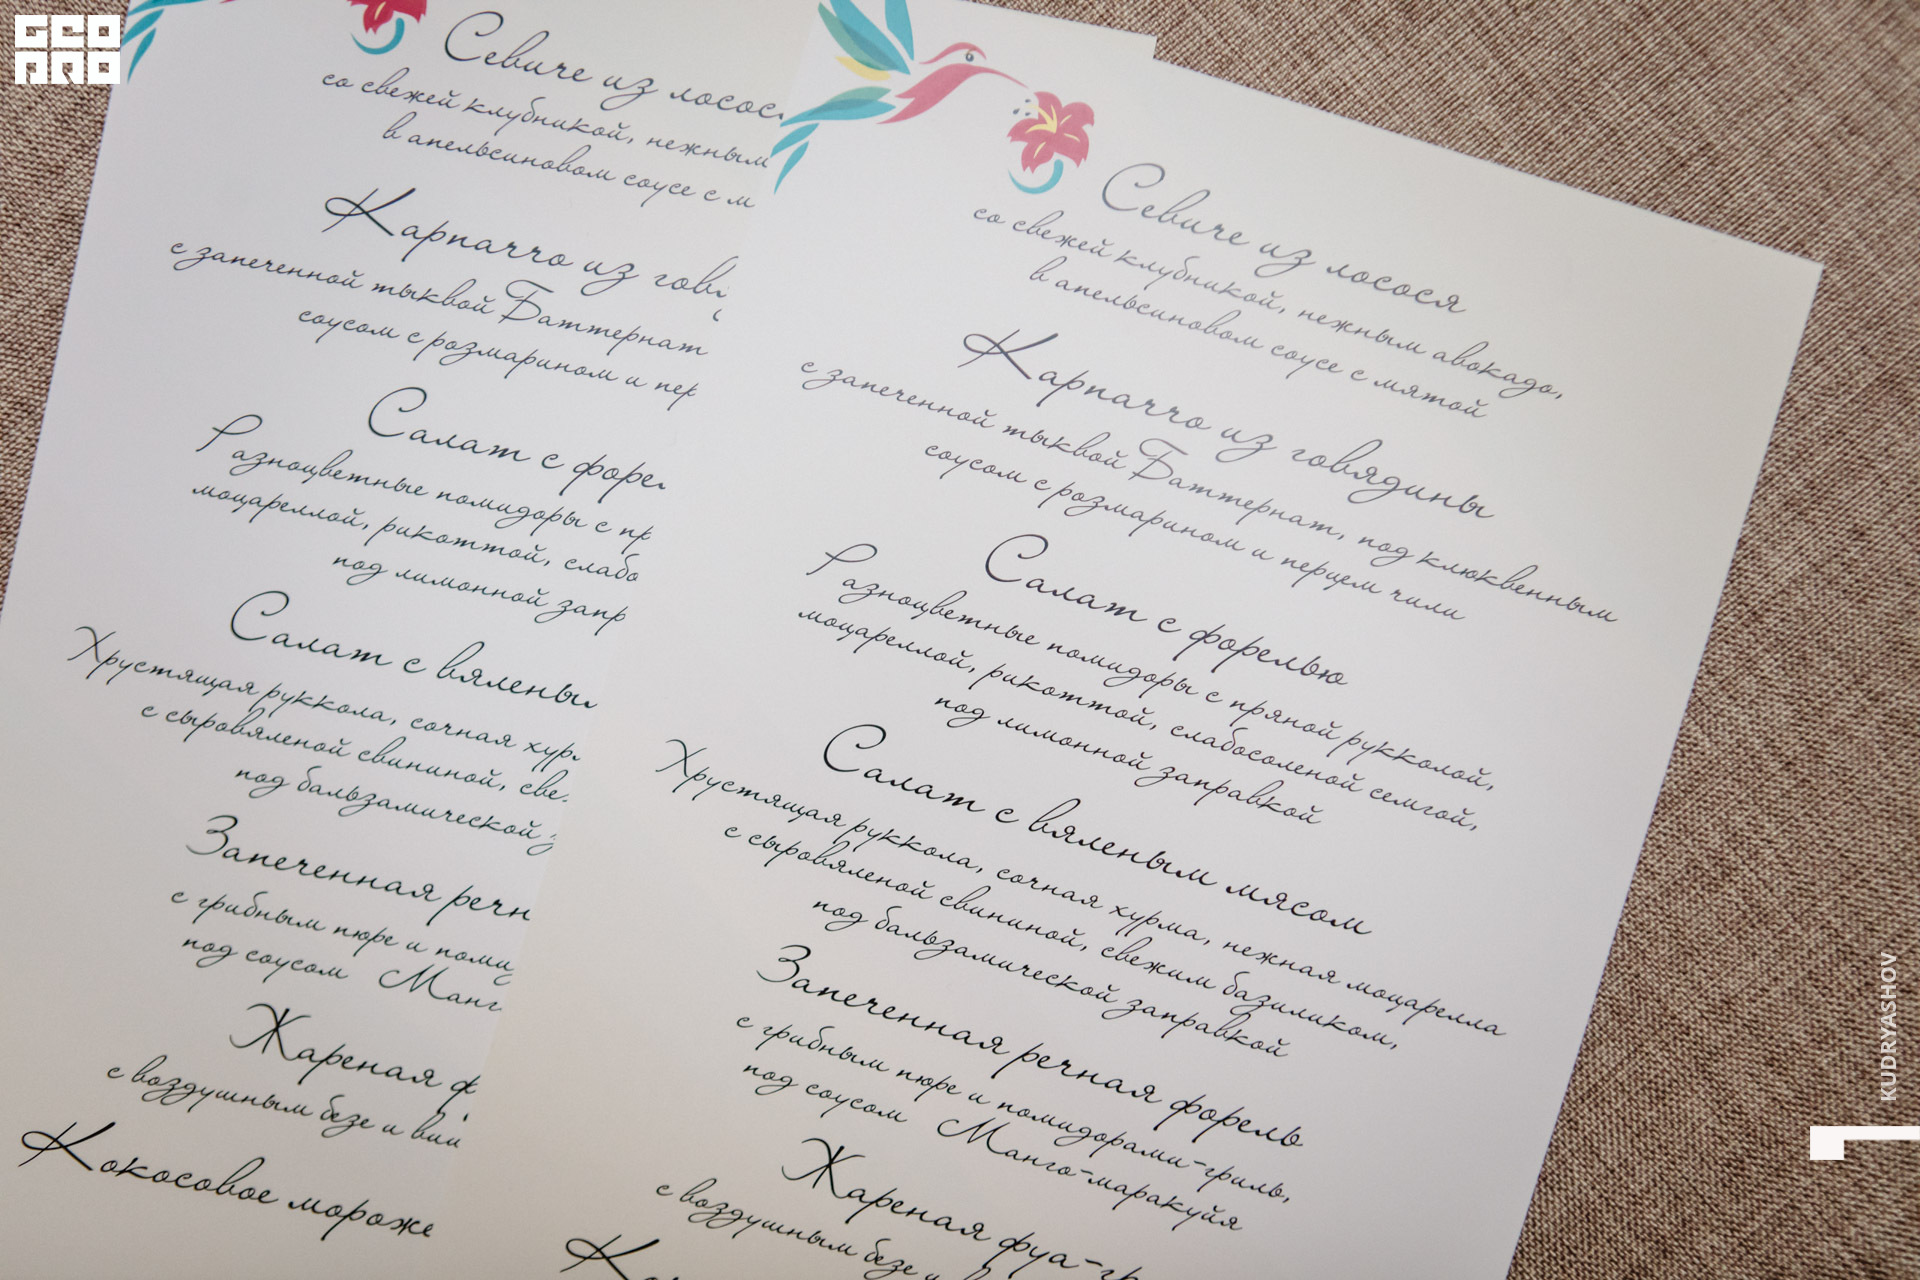 GEO
PRO
Севиче из лосося
со свежей клубникой, нежным
в апельсиновом соусе с м
Карпаччо из говя
с запеченной тыквой Баттернат
соусом с розмарином и пер
Салат с форел
Разноцветные помидоры с пр
моцареллой, рикоттой, слабо
под лимонной запр
Салат с вялены
Хрустящая руккола, сочная хур
с сыровяленой свининой, све
под бальзамической з
Запеченная речн
с грибным пюре и помид
под соусом Манг
Жареная ф
с воздушным безе и ви
Кокосовое мороже
Севиче из лосося
со свежей клубникой, нежным авокадо,
в апельсиновом соусе с мятой
Карпаччо из говядины
с запеченной тыквой Баттернат, под клюквенным
соусом с розмарином и перцем чили
Салат с форелью
Разноцветные помидоры с пряной рукколой,
моцареллой, рикоттой, слабосоленой семгой,
под лимонной заправкой
Салат с вяленым мясом
Хрустящая руккола, сочная хурма, нежная моцарелла
с сыровяленой свининой, свежим базиликом,
под бальзамической заправкой
Запеченная речная форель
с грибным пюре и помидорами-гриль,
под соусом Манго-маракуйя
Жареная фуа-гр
с воздушным безе и
KUDRYASHOV